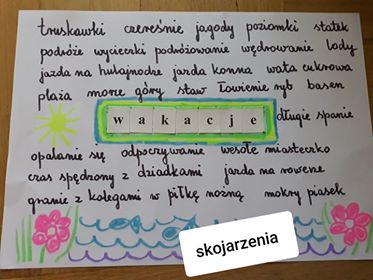 truskawki czereśnie jagody poziomki statek
podróże wycieczki podróżowanie wędrowanie lody
jazda na hulajnodze jazda konna wata cukrowa
plaża morze góry staw łowienie ryb basen
wakacje długie spanie
opalanie się odpoczywanie wesołe miasteczko
czas spędzony z dziadkami jazda na rowerze
granie z kolegami w piłkę nożną mokry piasek
skojarzenia